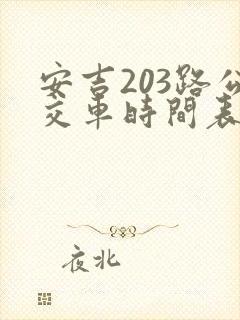 安吉203路公
交車時間表
夜北